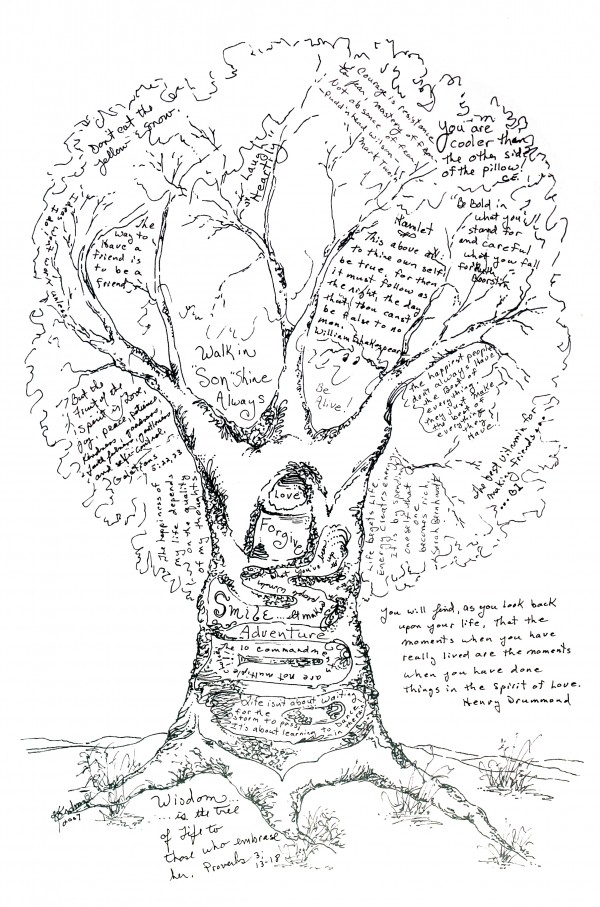 Don't eat the
yellow snow.
Laugh
Heartily
Courage is resistance
to fear, mastery of fear
Not absence of fear.
Pudd'n head Wilson's
Mark
You are
cooler than
the other side
of the pillow!
"Be Bold in
what you
stand for
and careful
what you fall
for"
Ruth
Boorstin
The
way to
Have a
friend is
to be a
friend
Hamlet
"This above all:
to thine own self
be true, for then
it must follow as
the night, the day
that thou canst
be false to no
man.
William Shakespeare
Walk in
"Son"Shine
Always
Be
Alive!
The happiest people
don't always
have the Best of
everything
they Just make
the best of
everything
they
Have.
But the
fruit of the
spirit is Love,
Joy, peace, patience
Kindness, goodness,
faithfulness, gentleness
and self-control.
Galatians
5:22,23
the best vitamin for
making friends...
... B1
The happiness of
my life depends
on the quality
of my thoughts
Life begets Life.
Energy creates energy
It is by spending
oneself that
one
becomes rich
Sarah Bernhardt
Love
Forgive
Smile
Adventure
The 10 commandments
are not multiple
Life isn't about waiting
for the
storm to pass,
It's about learning to
dance
in
rain
You will find, as you look back
upon your life, that the
moments when you have
really lived are the moments
when you have done
things in the Spirit of Love.
Henry Drummond
2007
Wisdom
... is the tree
of life to
those who embrace
her. Proverbs 3:
13-18